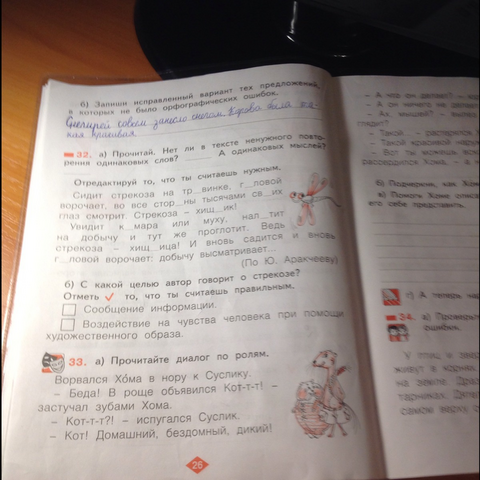 б) Запиши исправленный вариант тех предложений,
в которых не было орфографических ошибок.
совсем занесло снегом была
32. а) Прочитай. Нет ли в тексте ненужного повто-
рения одинаковых слов? А одинаковых мыслей?
Отредактируй то, что ты считаешь нужным.
Сидит стрекоза на тр_винке, г_ловой
ворочает, во все стор_ны тысячами св_их
глаз смотрит. Стрекоза – хищ_ик!
Увидит к_мара или муху, нал_тит
на добычу и тут же проглотит. Ведь
стрекоза – хищ_ица! И вновь садится и вновь
г_ловой ворочает: добычу высматривает...
(По Ю. Аракчееву)
б) С какой целью автор говорит о стрекозе?
Отметь ✓ то, что ты считаешь правильным.
Сообщение информации.
Воздействие на чувства человека при помощи
художественного образа.
33. а) Прочитайте диалог по ролям.
Ворвался Хо́ма в нору к Суслику.
– Беда! В роще объявился Кот-т-т! –
застучал зубами Хома.
– Кот-т-т?! – испугался Суслик.
– Кот! Домашний, бездомный, дикий!
26
– А что он делает? –
– А он ничего не делает
– Ах, мышей? –
глядит?
– Такой... –
– Такой красивой
– Вот ты можешь
рассердился Хома. –
б) Подчеркни, как
в) Помоги Хоме
его себе представить.
г) А теперь
34. а)
ошибок.
У птиц и
живут в
на земле.
самом верху